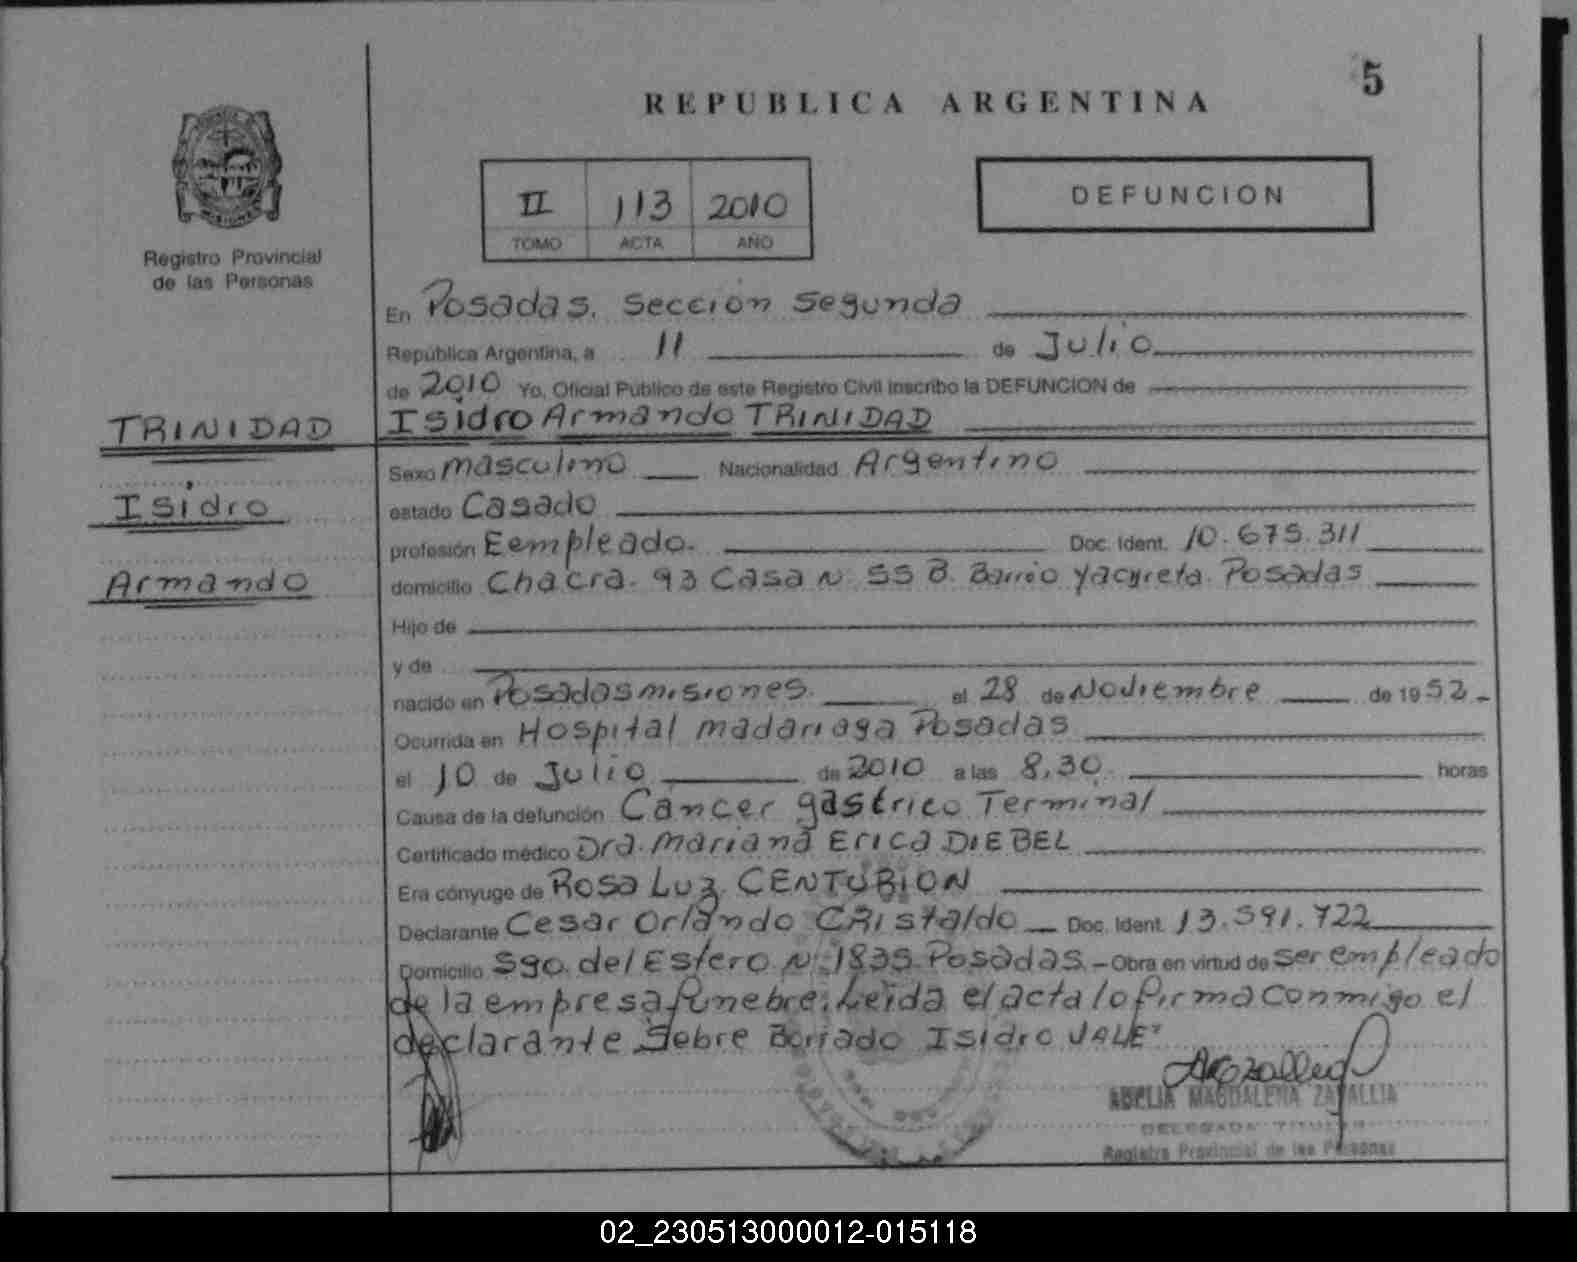 5
REPUBLICA ARGENTINA
II 113 2010
TOMO ACTA AÑO
DEFUNCION
Registro Provincial
de las Personas
En Posadas, Sección Segunda
República Argentina, a 11 de Julio
de 2010 Yo, Oficial Público de este Registro Civil inscribo la DEFUNCION de
Isidro Armando TRINIDAD
TRINIDAD
Isidro
Armando
Sexo masculino Nacionalidad Argentino
estado Casado
profesión Eempleado. Doc. Ident. 10.675.311
domicilio Chacra. 93 Casa N 55 B. Barrio Yacyreta. Posadas
Hijo de
y de
nacido en Posadas misiones. el 28 de Noviembre de 1952
Ocurrida en Hospital madariaga Posadas
el 10 de Julio de 2010 a las 8,30 horas
Causa de la defunción Cancer gástrico Terminal
Certificado médico Dra. Mariana Erica DIEBEL
Era cónyuge de Rosa Luz CENTURION
Declarante Cesar Orlando CRIstaldo Doc. Ident. 13.591.722
Domicilio Sgo. del Estero N 1835 Posadas - Obra en virtud de ser empleado
de la empresa funebre. Leida el acta lo firma conmigo el
declarante Sobre Borrado Isidro VALE
ADELIA MAGDALENA ZARALLIA
DELEGADA TITULAR
Registro Provincial de las Personas
02_230513000012-015118